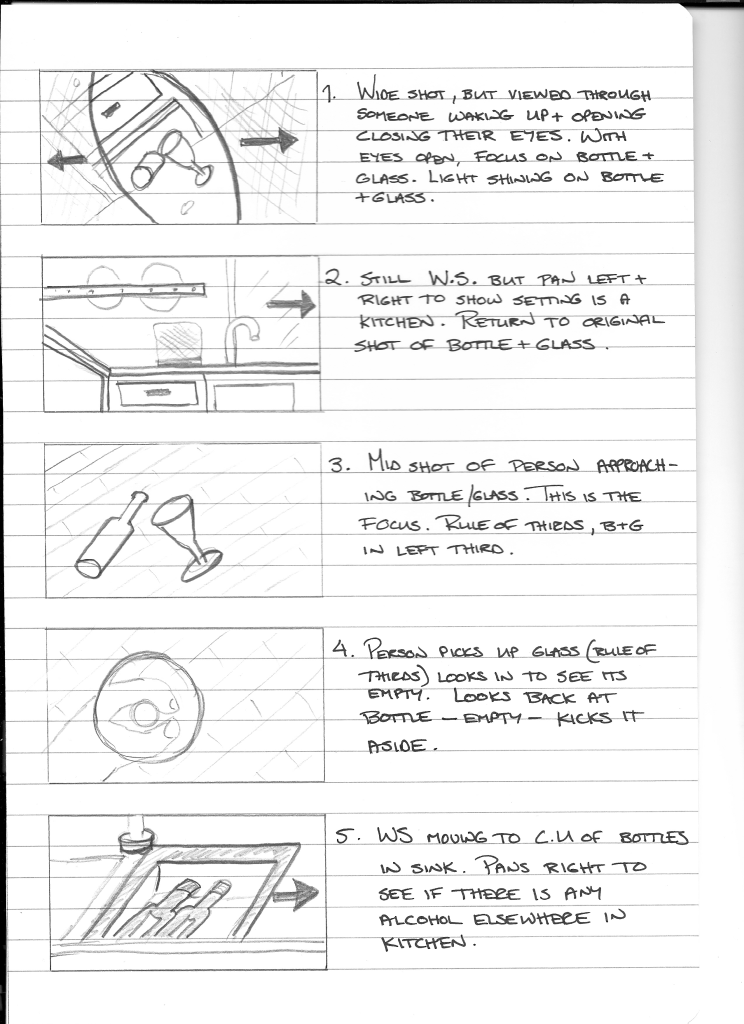 1. WIDE SHOT, BUT VIEWED THROUGH
SOMEONE WAKING UP + OPENING
CLOSING THEIR EYES. WITH
EYES OPEN, FOCUS ON BOTTLE +
GLASS. LIGHT SHINING ON BOTTLE
+ GLASS.
2. STILL W.S. BUT PAN LEFT +
RIGHT TO SHOW SETTING IS A
KITCHEN. RETURN TO ORIGINAL
SHOT OF BOTTLE + GLASS.
3. MID SHOT OF PERSON APPROACH-
ING BOTTLE/GLASS. THIS IS THE
FOCUS. RULE OF THIRDS, B+G
IN LEFT THIRD.
4. PERSON PICKS UP GLASS (RULE OF
THIRDS) LOOKS IN TO SEE ITS
EMPTY. LOOKS BACK AT
BOTTLE - EMPTY - KICKS IT
ASIDE.
5. WS MOVING TO C.U OF BOTTLES
IN SINK. PANS RIGHT TO
SEE IF THERE IS ANY
ALCOHOL ELSEWHERE IN
KITCHEN.